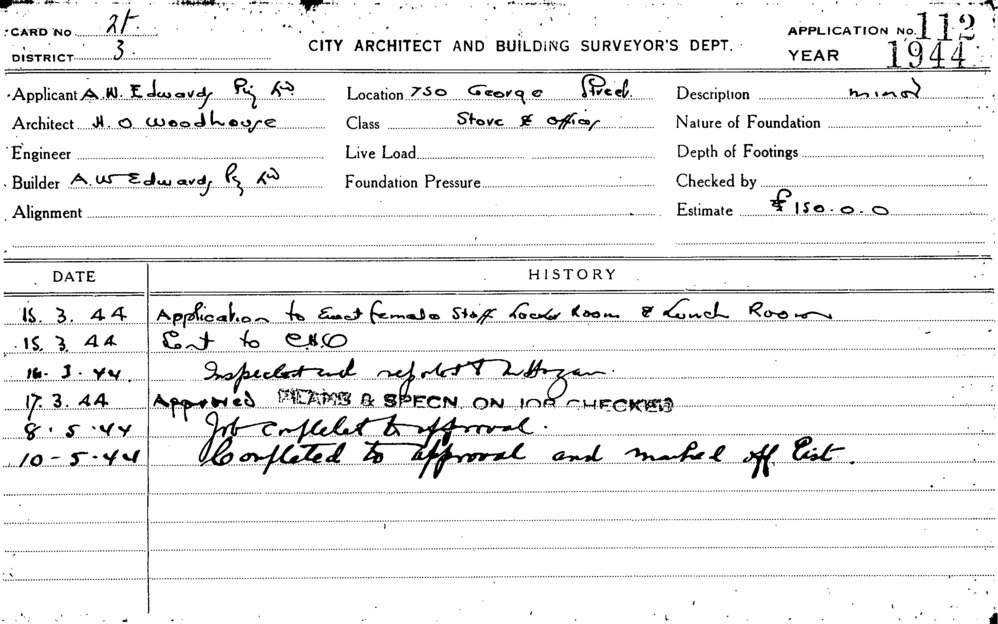 CARD No 21. CITY ARCHITECT AND BUILDING SURVEYOR'S DEPT. APPLICATION No. 112
DISTRICT 3 YEAR 1944
Applicant A.W. Edwards Pty Ld Location 750 George Street Description minor
Architect H. O Woodhouse Class Store & offices Nature of Foundation
Engineer Live Load Depth of Footings
Builder A.W Edwards Pty Ld Foundation Pressure Checked by
Alignment Estimate £150.0.0
DATE HISTORY
15. 3. 44 Application to Erect female Staff Locker Room & Lunch Room
15. 3. 44 Sent to CHO
16. 3. 44. Inspected and
17. 3. 44 Approved PLANS & SPECN. ON JOB CHECKED
8. 5. 44 Job complete to approval.
10-5-44 Completed to approval and marked off list.